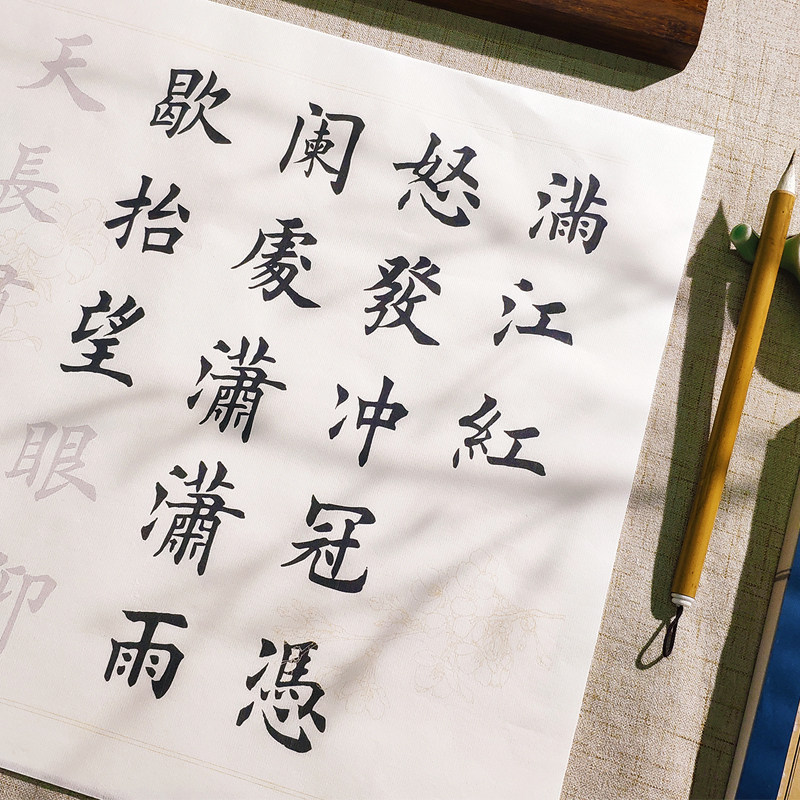 滿江紅
怒發冲冠憑
阑處瀟瀟雨
歇抬望眼仰
天長